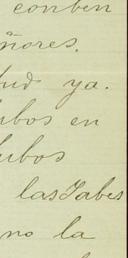 conben
ñores.
ud ya.
ubos en
ubos
las Jabes
no la